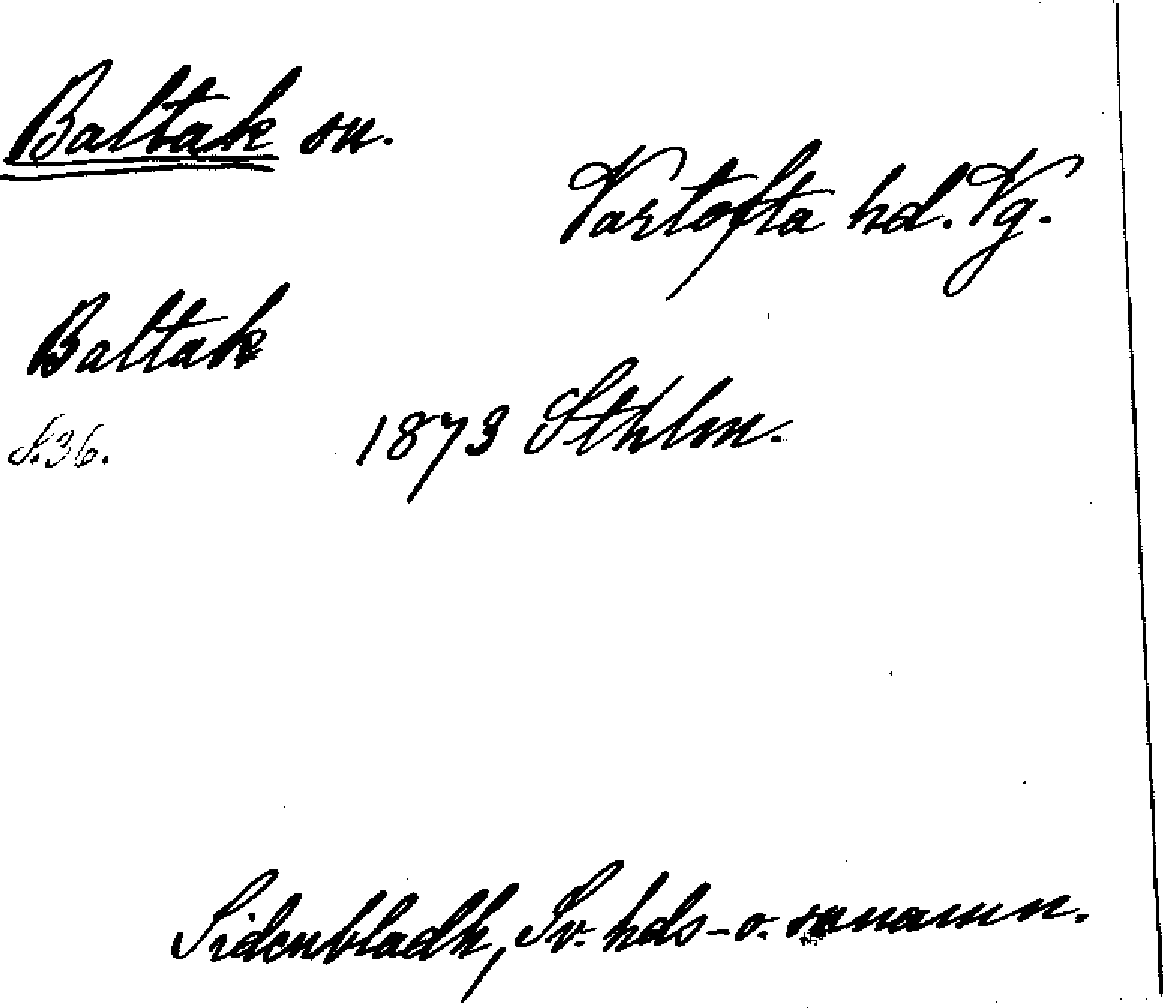 Baltak sn.
Vartofta hd. Vg.
Baltak
S.36.
1873 Sthlm.
Sidenbladh, Sv. hds- o. snnamn.